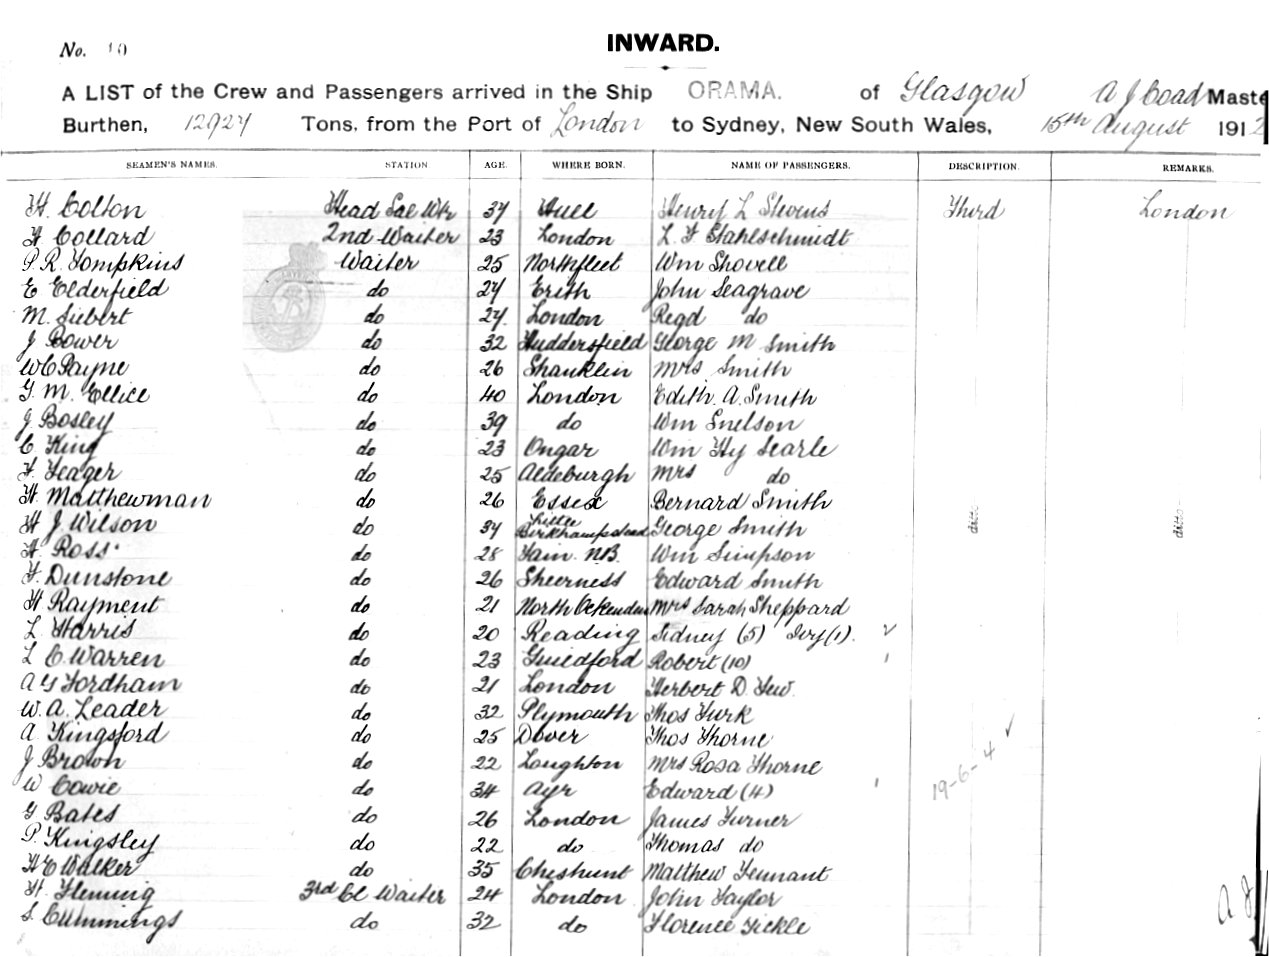 INWARD.
No. 10
A LIST of the Crew and Passengers arrived in the Ship ORAMA. of Glasgow A J Coad Maste
Burthen, 12927 Tons, from the Port of London to Sydney, New South Wales, 15th August 1912
SEAMEN'S NAMES. STATION AGE. WHERE BORN. NAME OF PASSENGERS. DESCRIPTION. REMARKS.
H. Colton Head Sal Wtr 37 Hull Henry L Stevens Third London
F Collard 2nd Waiter 23 London L. F Stahlschmidt
P. R. Tompkins Waiter 25 Northfleet Wm Shovell
E Elderfield do 27 Erith John Seagrave
M. Siebert do 27 London Regd do
J Bower do 32 Huddersfield George M Smith
W C Payne do 26 Shanklin Mrs Smith
G. M. Ellice do 40 London Edith. A. Smith
J. Bosley do 39 do Wm Snelson
C King do 23 Ongar Wm Hy Searle
F. Yeager do 25 Aldeburgh Mrs do
H Matthewman do 26 Essex Bernard Smith
H J. Wilson do 37 Little Berkhampstead George Smith ditto ditto
A. Ross do 28 Tain. N.B. Wm Simpson
F. Dunstone do 26 Sheerness Edward Smith
H Rayment do 21 North Ockendon Mrs Sarah Sheppard
L Harris do 20 Reading Sidney (5) Ivy (1).
L C. Warren do 23 Guildford Robert (10)
A G Fordham do 21 London Herbert D. Yew.
W. A. Leader do 32 Plymouth Thos Turk
A. Kingsford do 25 Dover Thos Thorne
J Brown do 22 Loughton Mrs Rosa Thorne 19-6-4
W Cowie do 34 Ayr Edward (4)
G Bates do 26 London James Turner
P. Kingsley do 22 do Thomas do
H C Walker do 35 Cheshunt Matthew Tennant
H. Fleming 3rd Cl Waiter 24 London John Taylor A J
S. Cummings do 32 do Florence Tickle